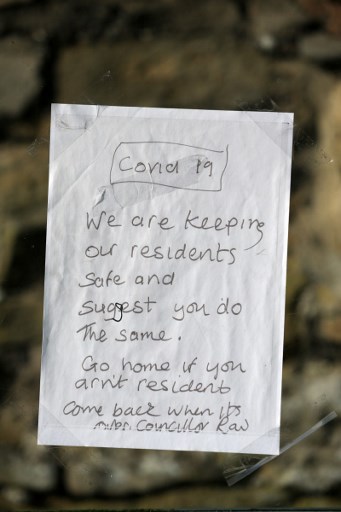 Covid 19
We are keeping
our residents
safe and
suggest you do
the same.
Go home if you
arn't resident
Come back when its
Councillor